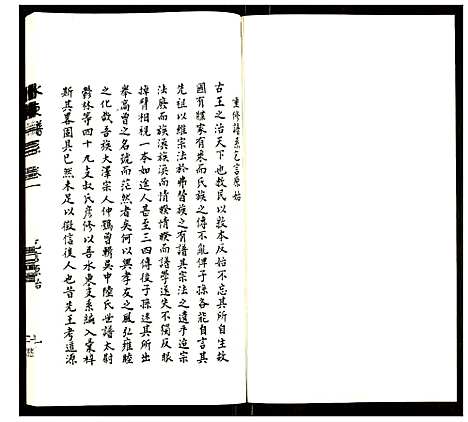 重修譜系乞言原始
古王之治天下也教民以敦本反始不忘其所自生故
國有牒家有乘而氏族之傳不亂俾子孫各能自言其
先祖以維宗法於弗替族之有譜其宗法之遺乎迨宗
法廢而族渙族渙而情睽情睽而譜學遂失不獨反眼
掉臂相視一本如途人甚至三四傳後子孫迷其所出
舉高曾之名號而茫然者矣何以興孝友之風弘雍睦
之化哉吾族大澤宗人仲鶴曾輯吳中陸氏世譜太尉
鬱林等四十九支叔氏彥修以吾水東支系編入棠梓
斯其畧固具已然未足以徵信後人也昔先王考道源
水東譜
卷一